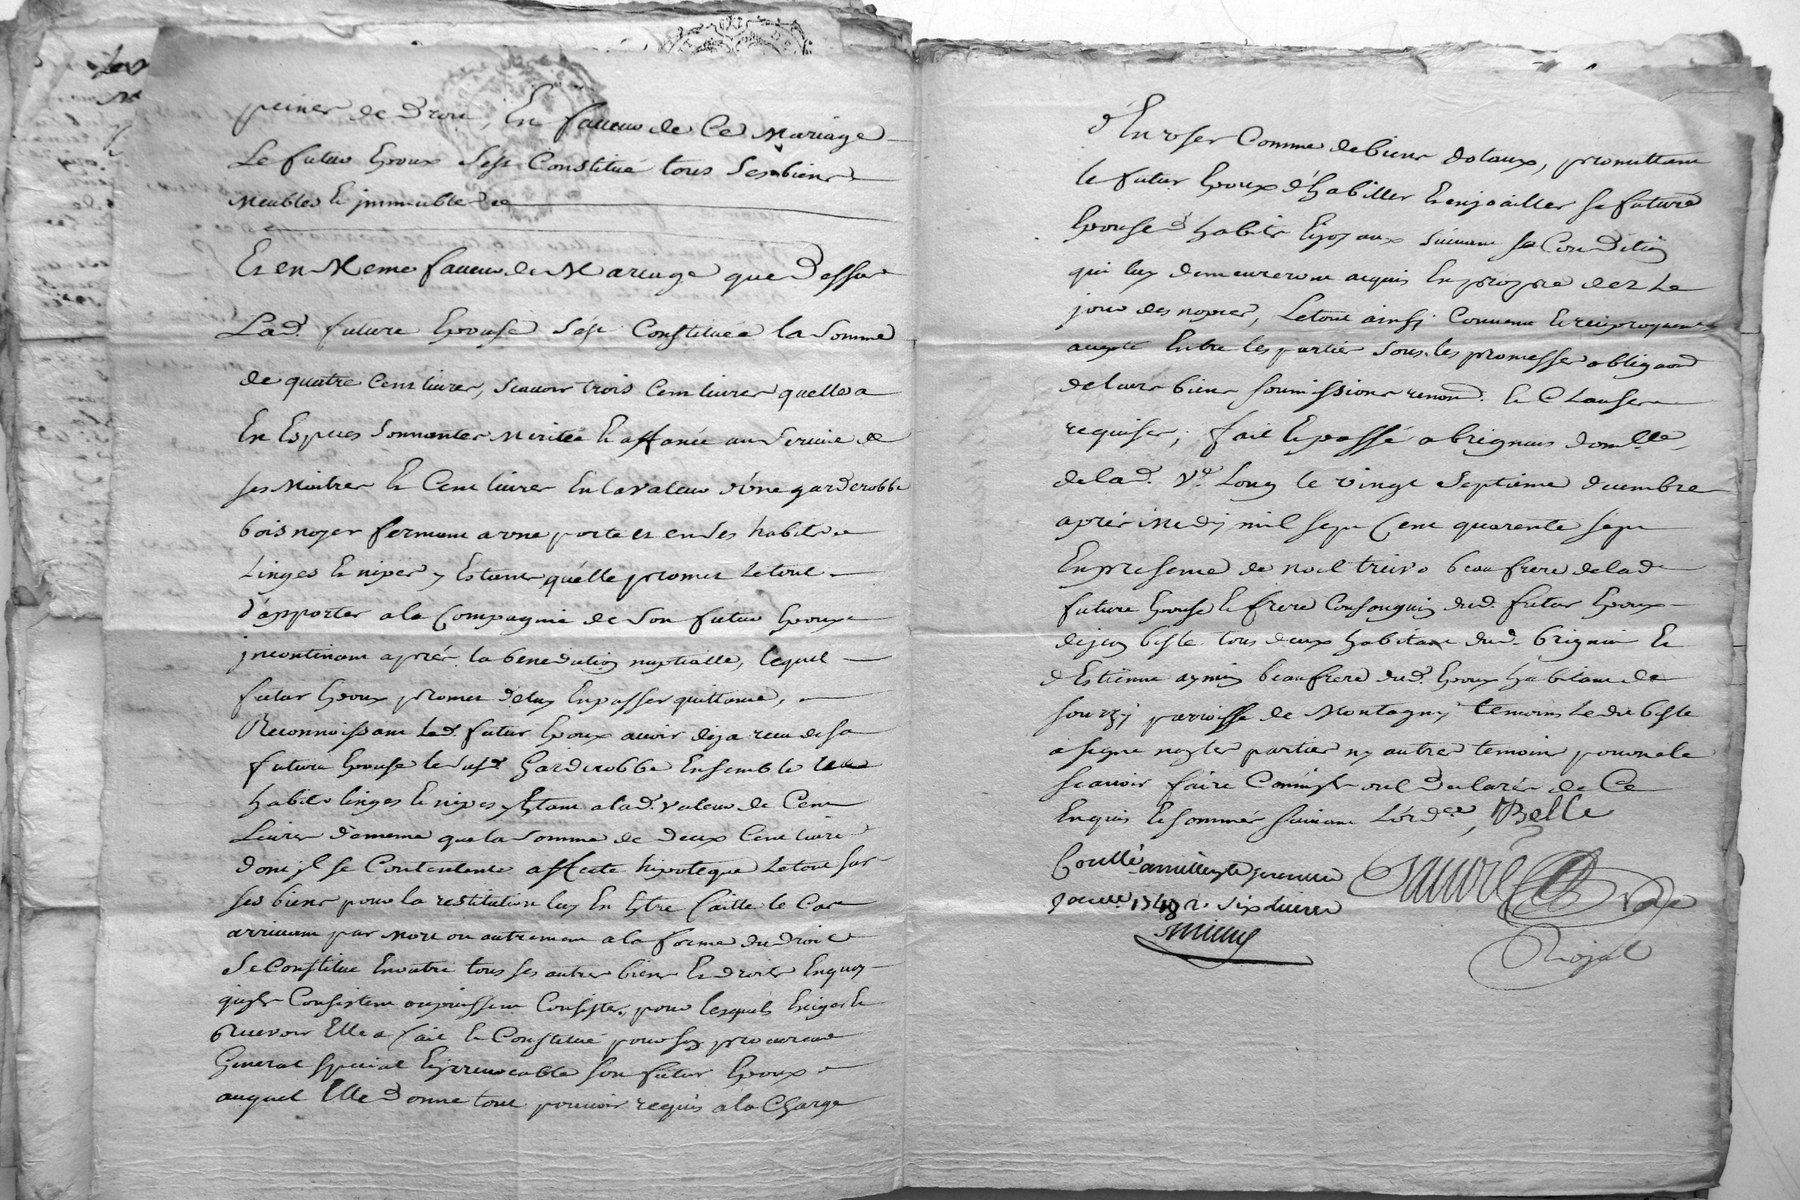 peines de Droit, En faveur de Ce Mariage
Le futur Epoux s'est Constitué tous ses biens
Meubles et immeubles
Et en Meme faveur de Mariage que Dessus
Lad. future Epouse s'est Constituée la Somme
de quatre Cent livres, scavoir trois Cent livres quelle a
En Especes Sonnantes Meritée et affanée au Service de
ses Maitres et Cent livres En la valeur d'une garderobbe
bois noyer fermant a une porte et en ses habits
Linges et nipes y Estants qu'elle promet le tout
d'apporter a la Compagnie de Son futur Epoux
incontinant aprés la benediction nuptialle, lequel
futur Epoux promet d'eluy En passer quittance,
Reconnoissant Led. futur Epoux avoir deja receu de sa
future Epouse le susd. Garderobbe Ensemble les
habits linges et nipes y Etant a lad. valeur de Cent
Livres de meme que la somme de Deux Cent livres
dont il se Contentente affecte hipoteque Le tout sur
ses biens pour la restitution luy En Etre faitte le Cas
arrivant par Mort ou autrement a la forme du Droit
Se Constitue En outre tous ses autres biens et droits En quoy
quils Consistent ou puissent Consister, pour lesquels Exiger et
Recevoir Elle a fait et Constitué pour son procureur
General special et irrevocable son futur Epoux
auquel Elle Donne tout pouvoir requis a la Charge
d'En user Comme de biens dotaux, promettant
le futur Epoux d'habiller et enjoailler sa future
Epouse d'habits et joyaux suivant sa Condition
qui luy demeureront acquis En propre dez Le
jour des nopces, Le tout ainsi Convenu et reciproquement
accepté Entre les parties sous les promesses obligaon
de leurs biens soumissions renon. et Clauses
requises, fait et passé a brignais domlle
de lad. Ve. Long le vingt septieme decembre
aprés midy mil sept Cent quarente sept
En presence de noel beaufrere de lad.
future Epouse et frere Consanguin dud. futur Epoux
de jean biste tous deux habitant dud. brignais Et
d'Estienne aymin beaufrere dud. Epoux habitant de
sourzy parroisse de Montagny temoins Le dit biste
a signé non les parties ny autres temoin pour ne le
scavoir faire Comm'ils ont Declarés de Ce
Enquis et sommés suivant L'ordce, Belle
Conllé a millery le
janvier 1748 R. six livres
Royal